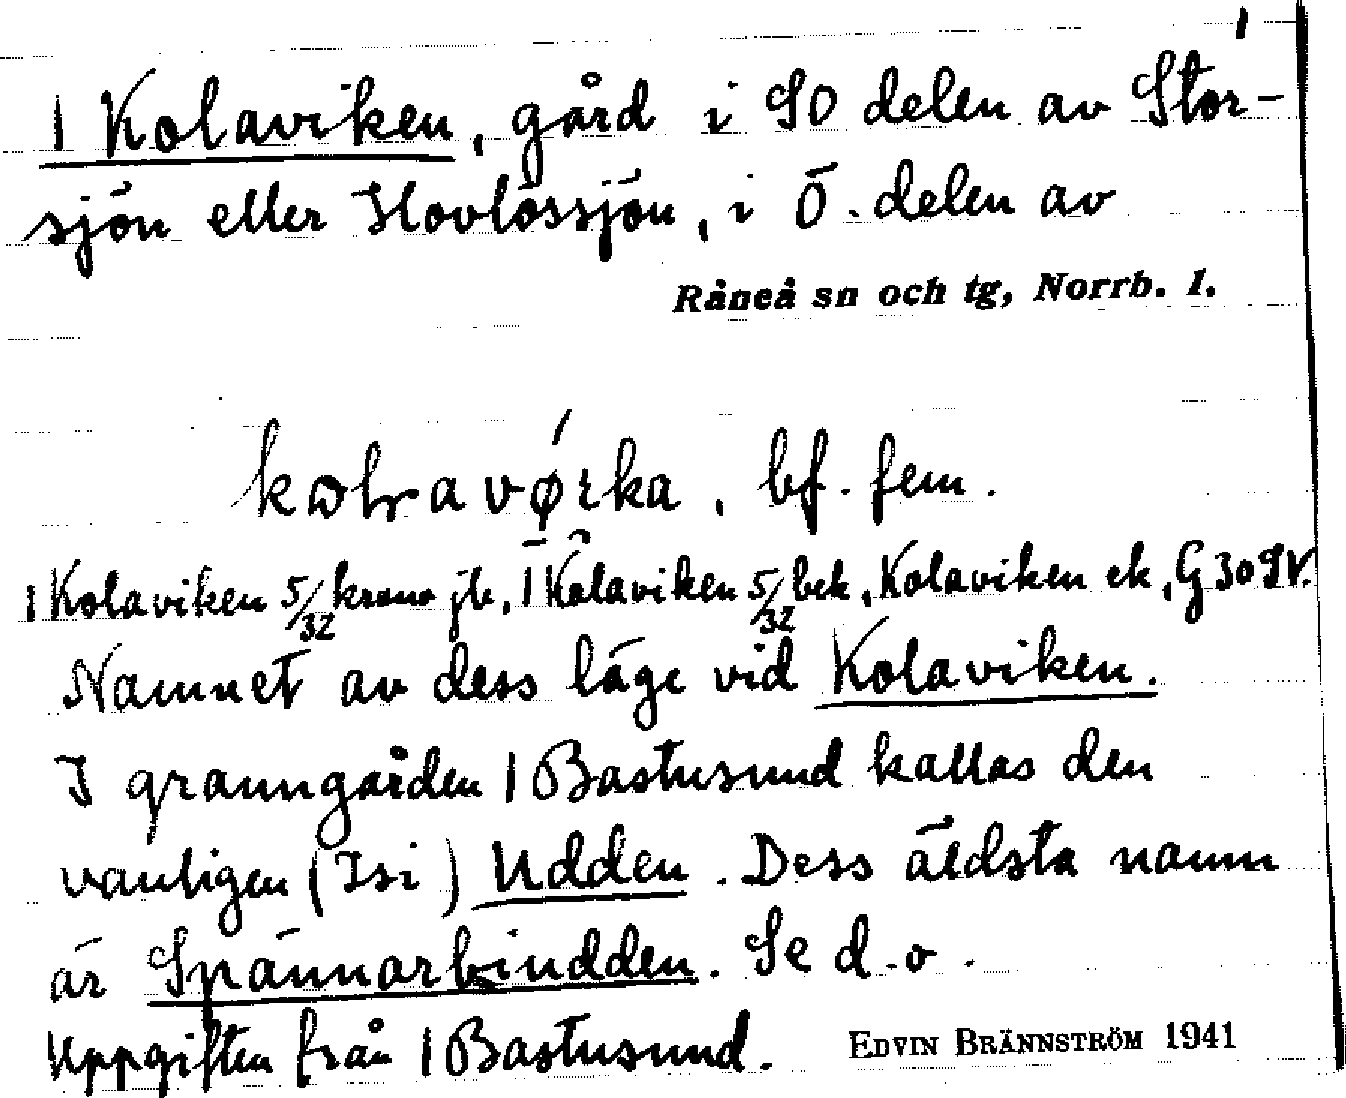 1
1 Kolaviken, gård i SO delen av Stor-
sjön eller Hovlössjön, i Ö. delen av
Råneå sn och tg, Norrb. l.
bf. fem.
1 Kolaviken 5/32 krono jb, 1 Kölaviken 5/32 bek, Kolaviken ek, G 30 SV.
Namnet av dess läge vid Kolaviken.
I granngården 1 Bastusund kallas den
vanligen (Isi) Udden. Dess äldsta namn
är Spännarbiudden. Se d.o.
Uppgiften från 1 Bastusund. EDVIN BRÄNNSTRÖM 1941